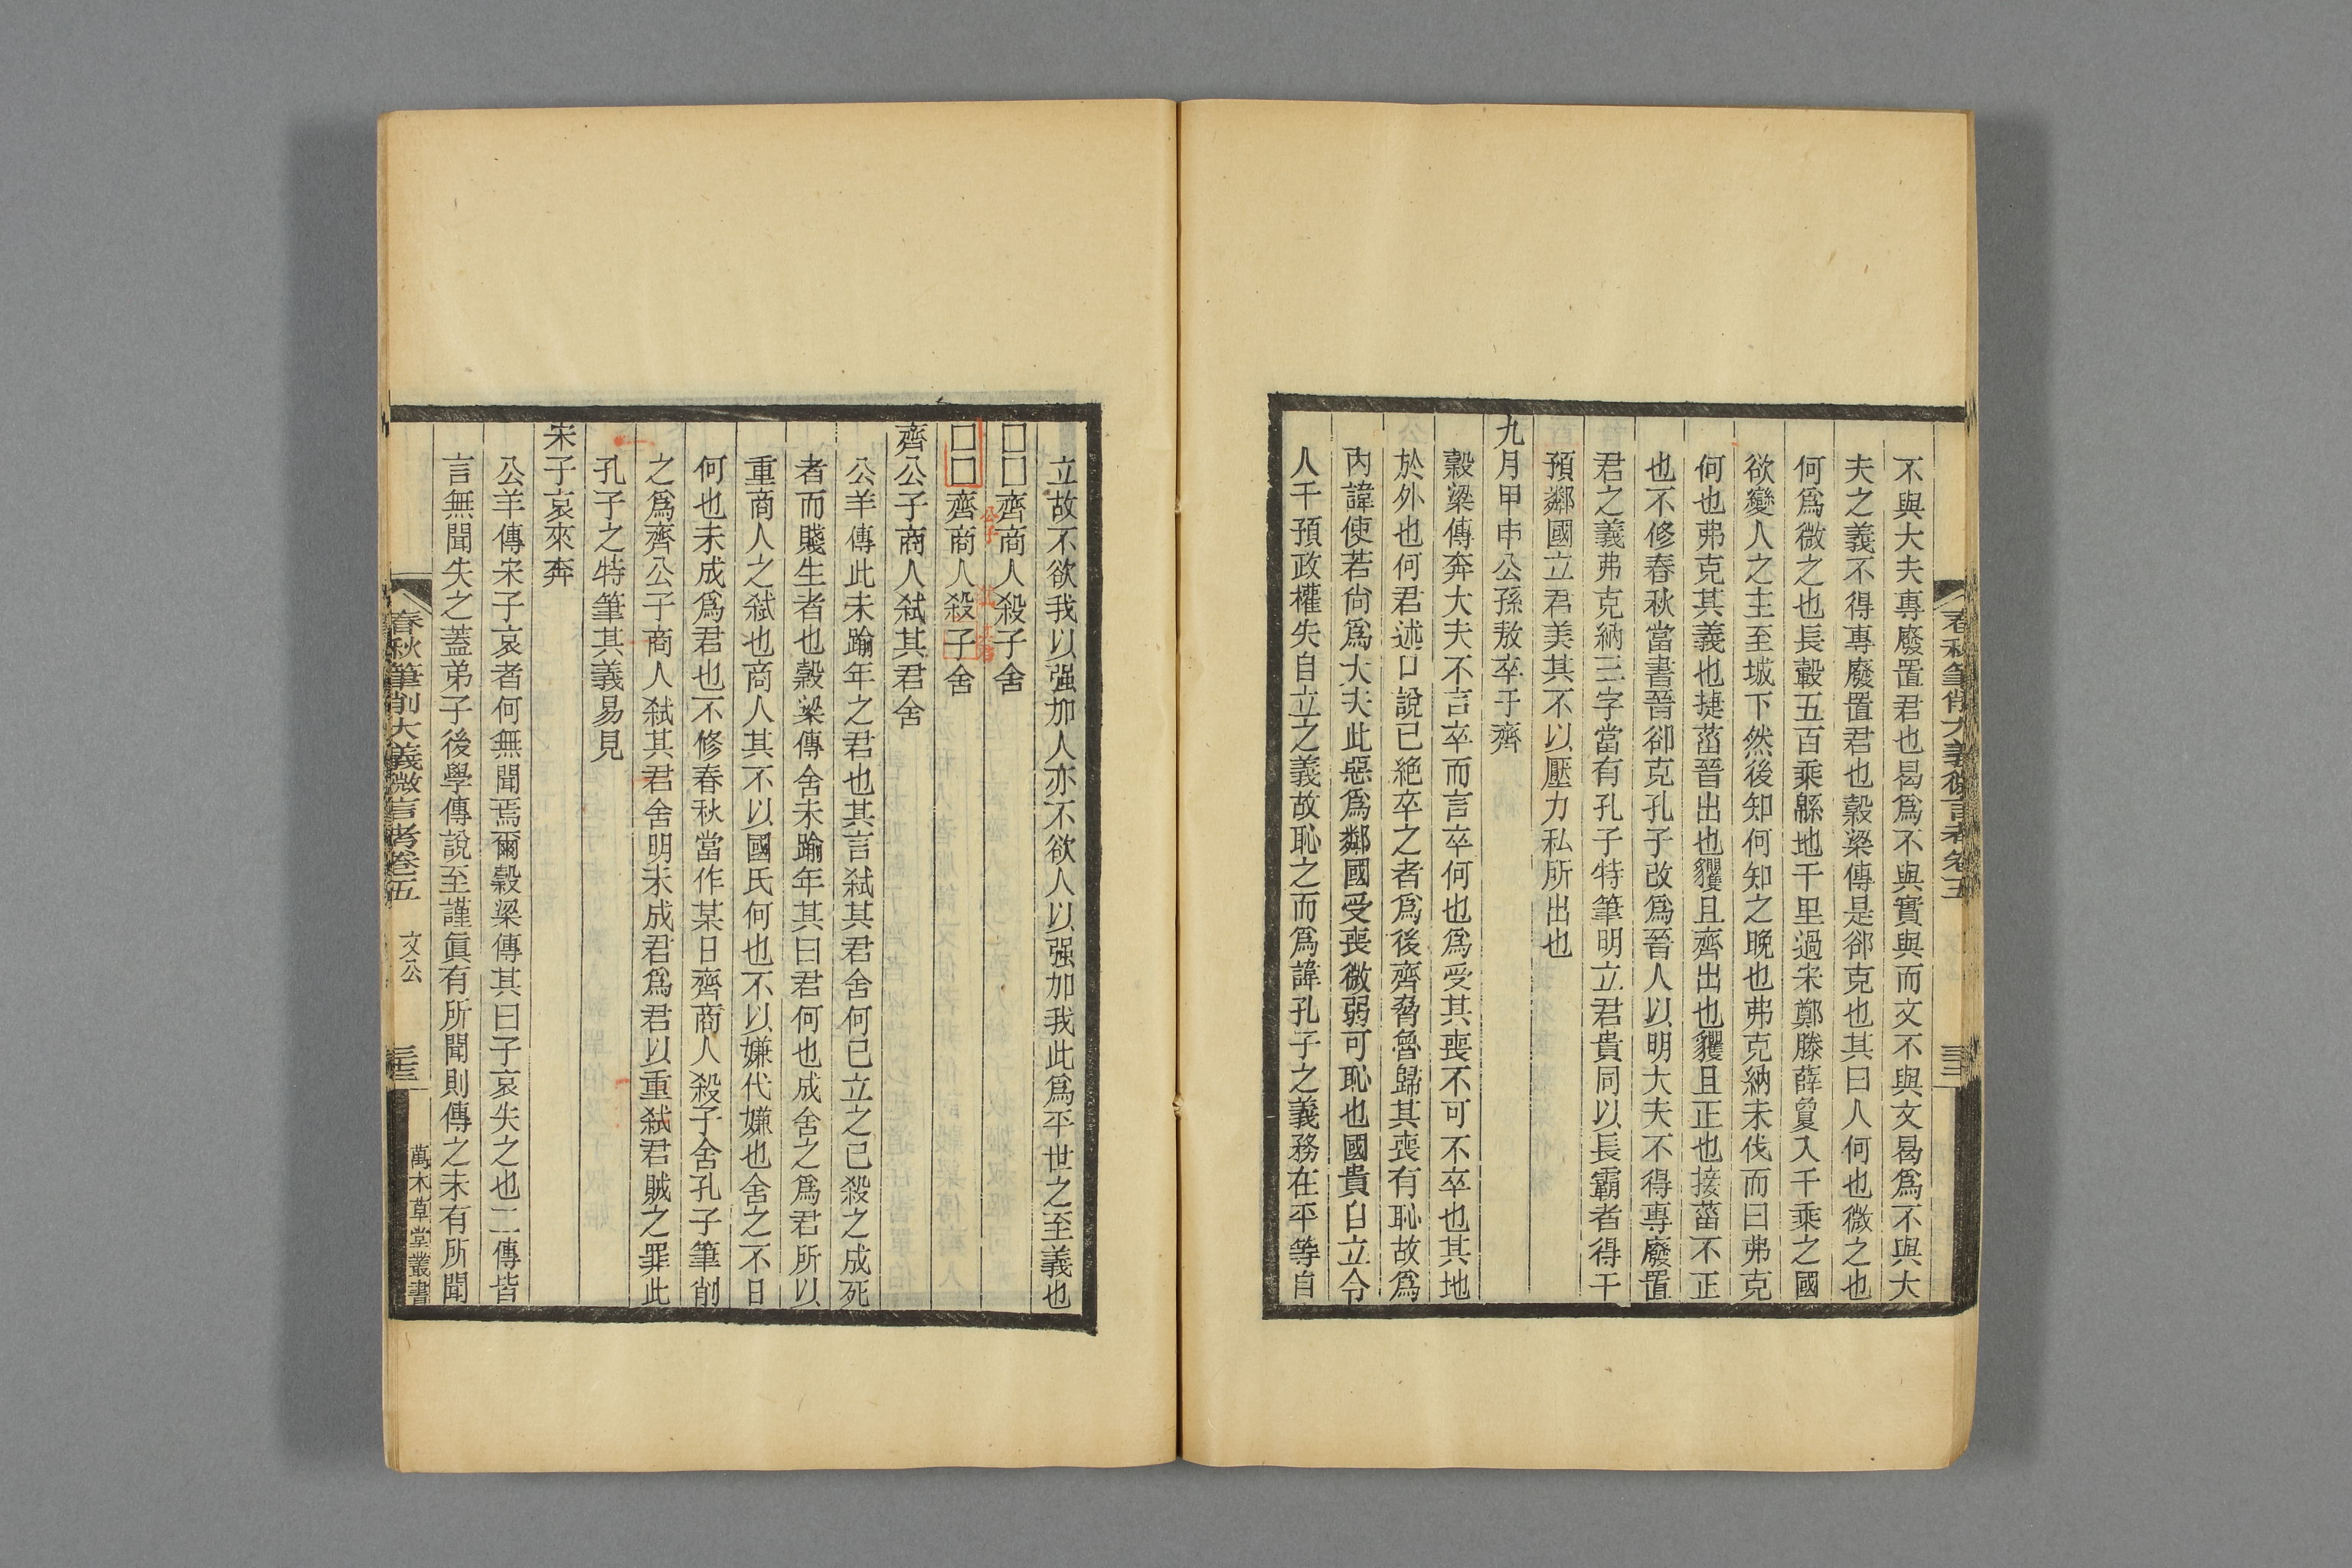 春秋筆削大義微言考卷五
三十二
不與大夫專廢置君也曷爲不與實與而文不與文曷爲不與大
夫之義不得專廢置君也穀梁傳是郤克也其曰人何也微之也
何爲微之也長轂五百乘緜地千里過宋鄭滕薛敻入千乘之國
欲變人之主至城下然後知何知之晚也弗克納未伐而曰弗克
何也弗克其義也捷菑晉出也貜且齊出也貜且正也接菑不正
也不修春秋當書晉郤克孔子改爲晉人以明大夫不得專廢置
君之義弗克納三字當有孔子特筆明立君貴同以長霸者得干
預鄰國立君美其不以壓力私所出也
九月甲申公孫敖卒于齊
穀梁傳奔大夫不言卒而言卒何也爲受其喪不可不卒也其地
於外也何君述口說已絶卒之者爲後齊脅魯歸其喪有恥故爲
內諱使若尙爲大夫此惡爲鄰國受喪微弱可恥也國貴自立令
人干預政權失自立之義故恥之而爲諱孔子之義務在平等自
立故不欲我以强加人亦不欲人以强加我此爲平世之至義也
□□齊商人殺子舍
□□齊商人殺子舍
齊公子商人弑其君舍
公羊傳此未踰年之君也其言弑其君舍何已立之已殺之成死
者而賤生者也穀梁傳舍未踰年其曰君何也成舍之爲君所以
重商人之弑也商人其不以國氏何也不以嫌代嫌也舍之不日
何也未成爲君也不修春秋當作某日齊商人殺子舍孔子筆削
之爲齊公子商人弑其君舍明未成君爲君以重弑君賊之罪此
孔子之特筆其義易見
宋子哀來奔
公羊傳宋子哀者何無聞焉爾穀梁傳其曰子哀失之也二傳皆
言無聞失之蓋弟子後學傳說至謹眞有所聞則傳之未有所聞
春秋筆削大義微言考卷五
文公
三十三
萬木草堂叢書